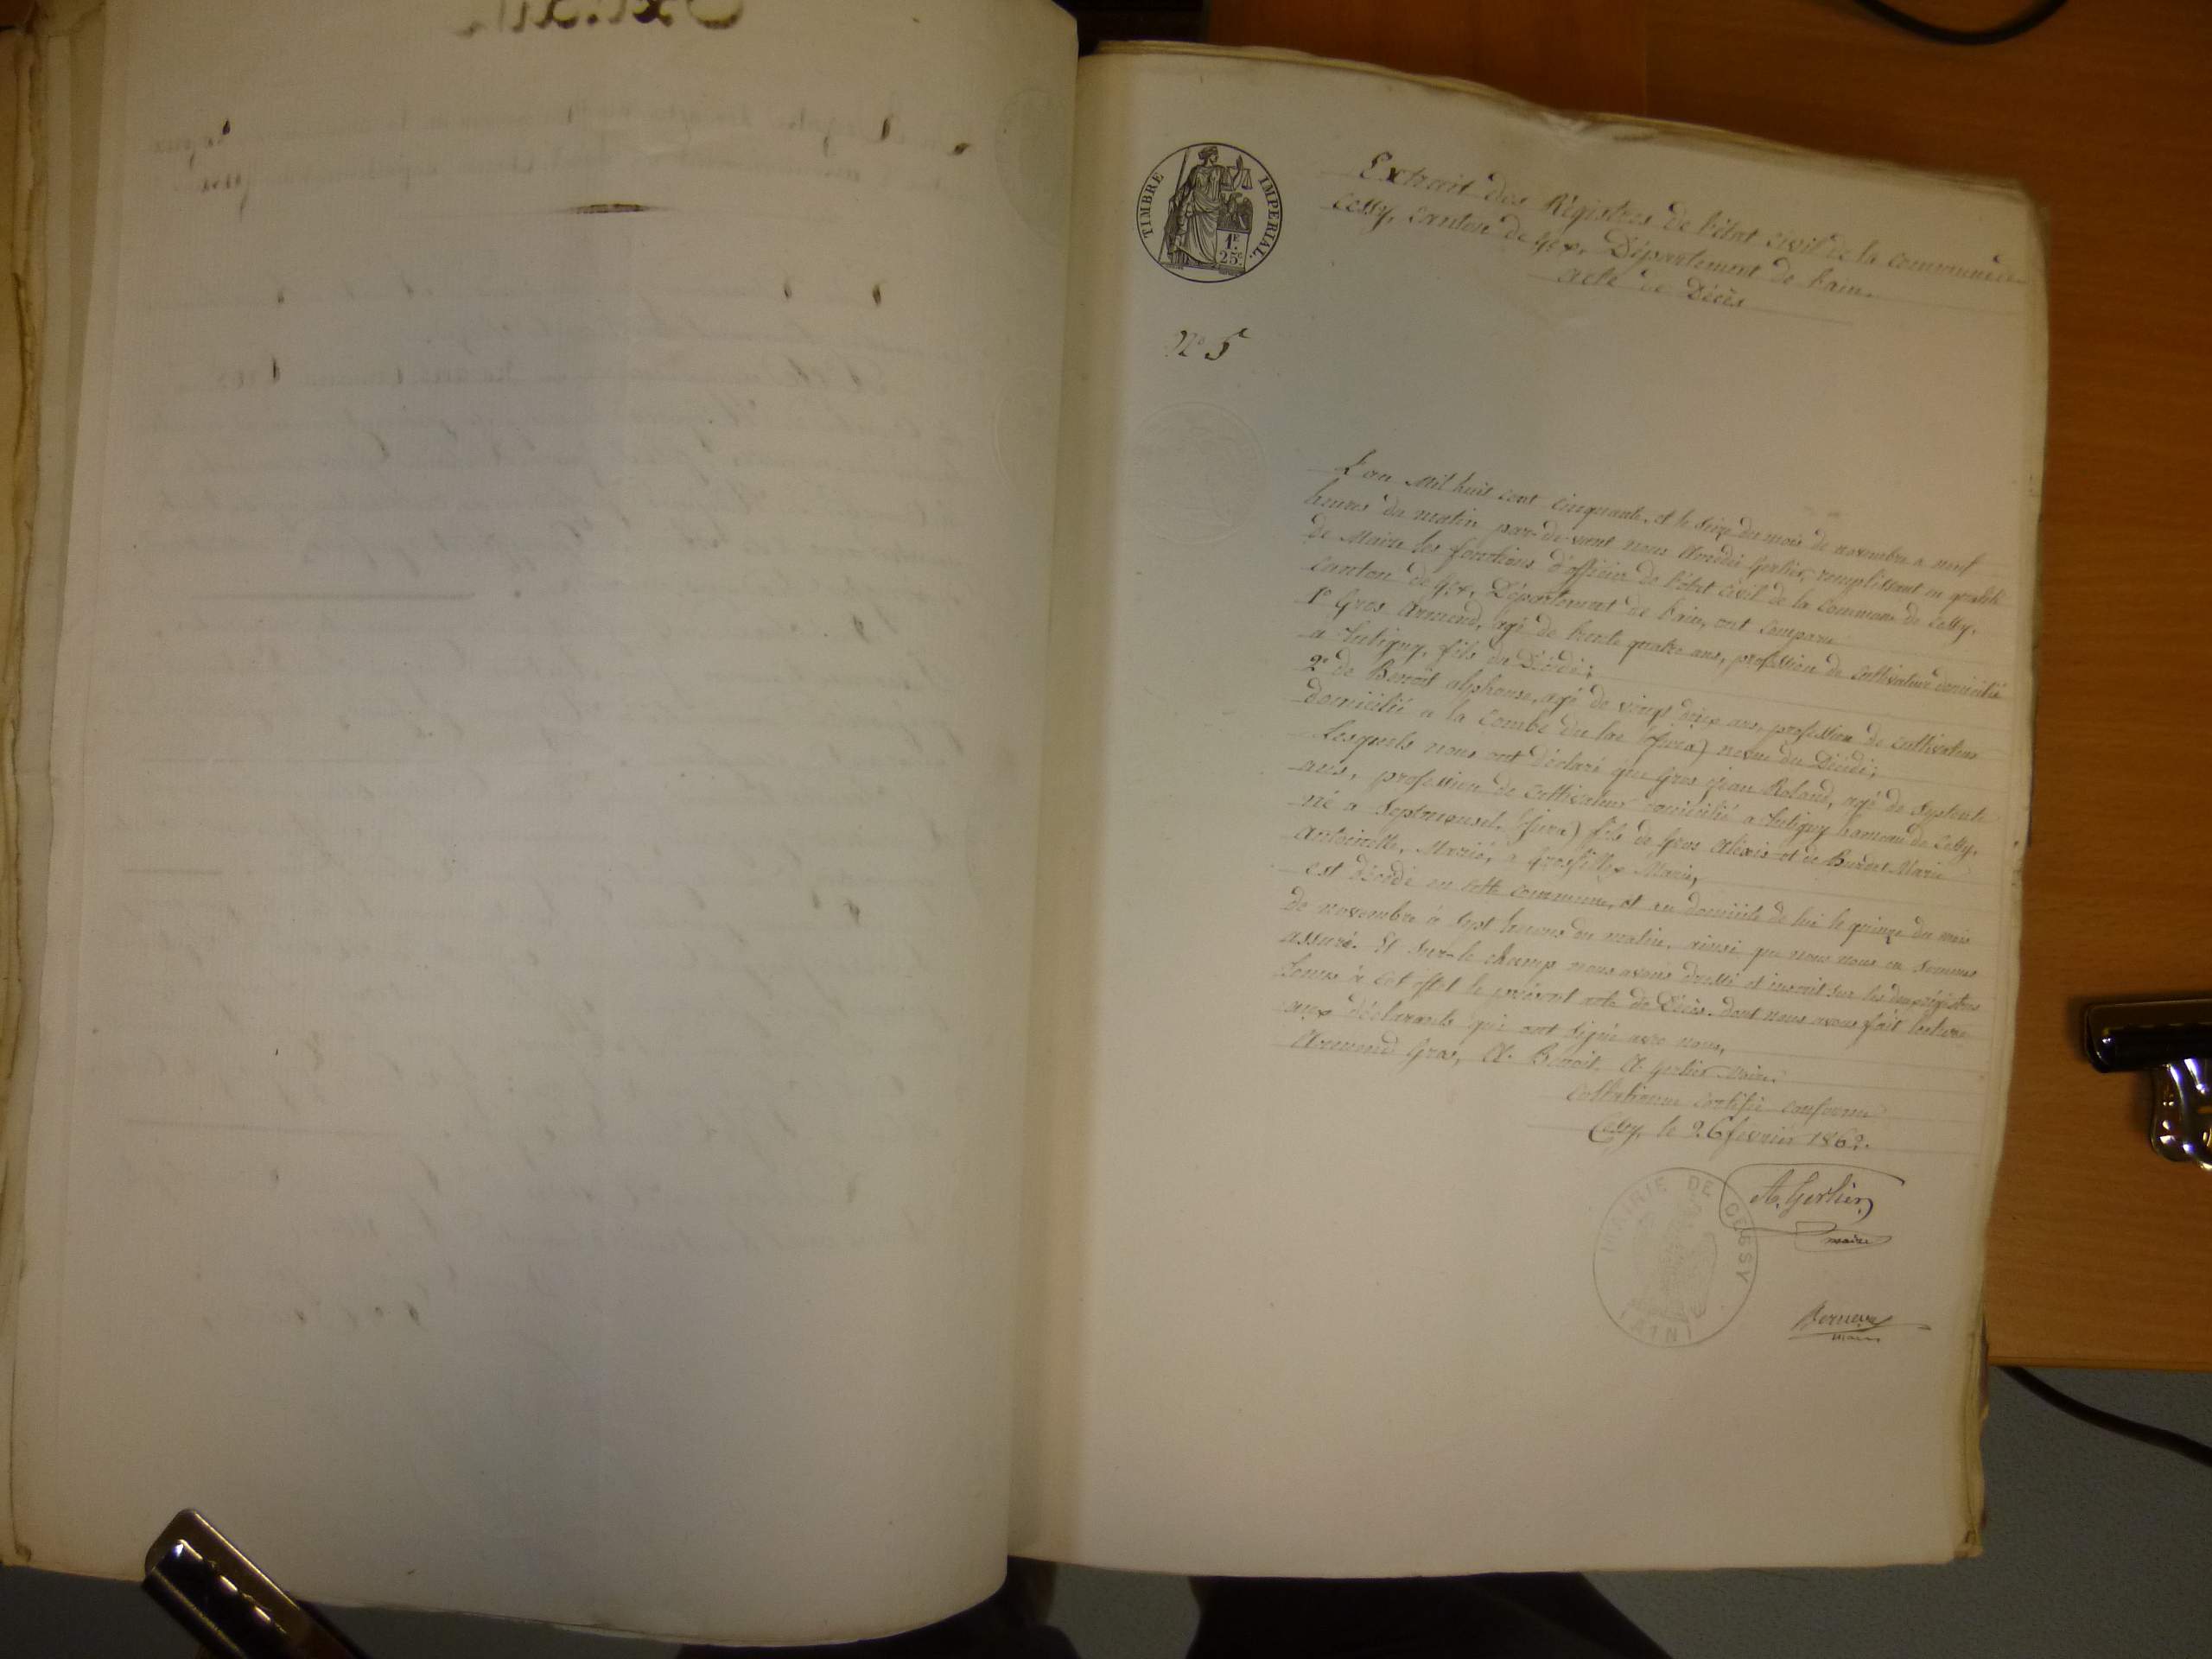 TIMBRE IMPERIAL.
1F.
25c.
Extrait des Régistres de l'état civil de la commune de
Cessy, canton de Gex, Département de l'ain.
acte de Décès
N° 5
L'an Mil huit cent cinquante, et le seize du mois de novembre a neuf
heures du matin par-de-vant nous Amédée Gerlier, remplissant en qualité
de Maire les fonctions d'officier de l'état civil de la Commune de Cessy,
Canton de Gex, Département de l'ain, ont comparu
1° Gros Armand, agé de trente quatre ans, profession de cultivateur domicilié
a Tutigny, fils du Décédé;
2° de Benoit alphonse, agé de vingt deux ans, profession de cultivateur
domicilié a la Combe du lac (Jura) neveu du Décédé;
Lesquels nous ont déclaré que Gros Jean Roland, agé de Septente
ans, profession de Cultivateur domicilié a Tutigny hameau de Cessy,
né a Septmoncel, (Jura) fils de Gros Alexis et de Burdet Marie
Antoinette, Marié, a Grosfillex Marie,
est décédé en cette commune, et en domicile de lui le quinze du mois
de novembre à Sept heures du matin, ainsi que nous nous en sommes
assuré. Et sur-le-champ nous avons dressé et inscrit sur les deux régistres
tenus à cet effet le présent acte de Décès. dont nous avons fait lecture
aux déclarants qui ont signé avec nous,
Armand Gros, A. Benoit, A. Gerlier Maire.
certifié conforme
Cessy, le 26 février 1862.
A. Gerlier
maire
MAIRIE DE CESSY
(AIN)
maire